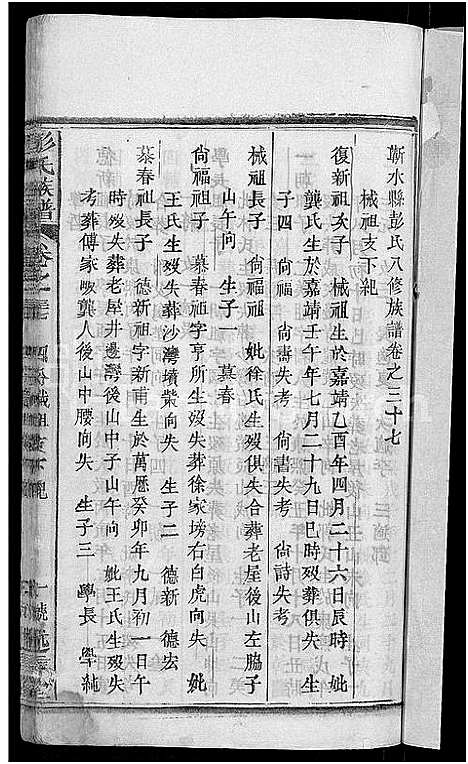 蘄水縣彭氏八修族譜卷之三十七
棫祖支下䂠
復新祖次子　棫祖生於嘉靖乙酉年四月二十六日辰時　妣
龔氏生於嘉靖壬午年七月二十九日巳時歿葬俱失　生
子四　尙壽失考　尙書失考　尙詩失考
棫祖長子　尙福祖　妣徐氏生歿俱失合葬老屋後山左脇子
山午向　生子一　慕春
尙福祖子　慕春祖字亨所生歿失葬徐家塝右白虎向失　妣
王氏生歿失葬沙灣墳欒向失　生子二　德新　德宏
慕春祖長子　德新祖字新甫生於萬厯癸卯年九月初一日午
時歿失葬老屋井邊灣後山中子山午向　妣王氏生歿失
考葬傅家㘭龔人後山中腰向失　生子三　學長　學純
彭氏族譜　卷之三十七